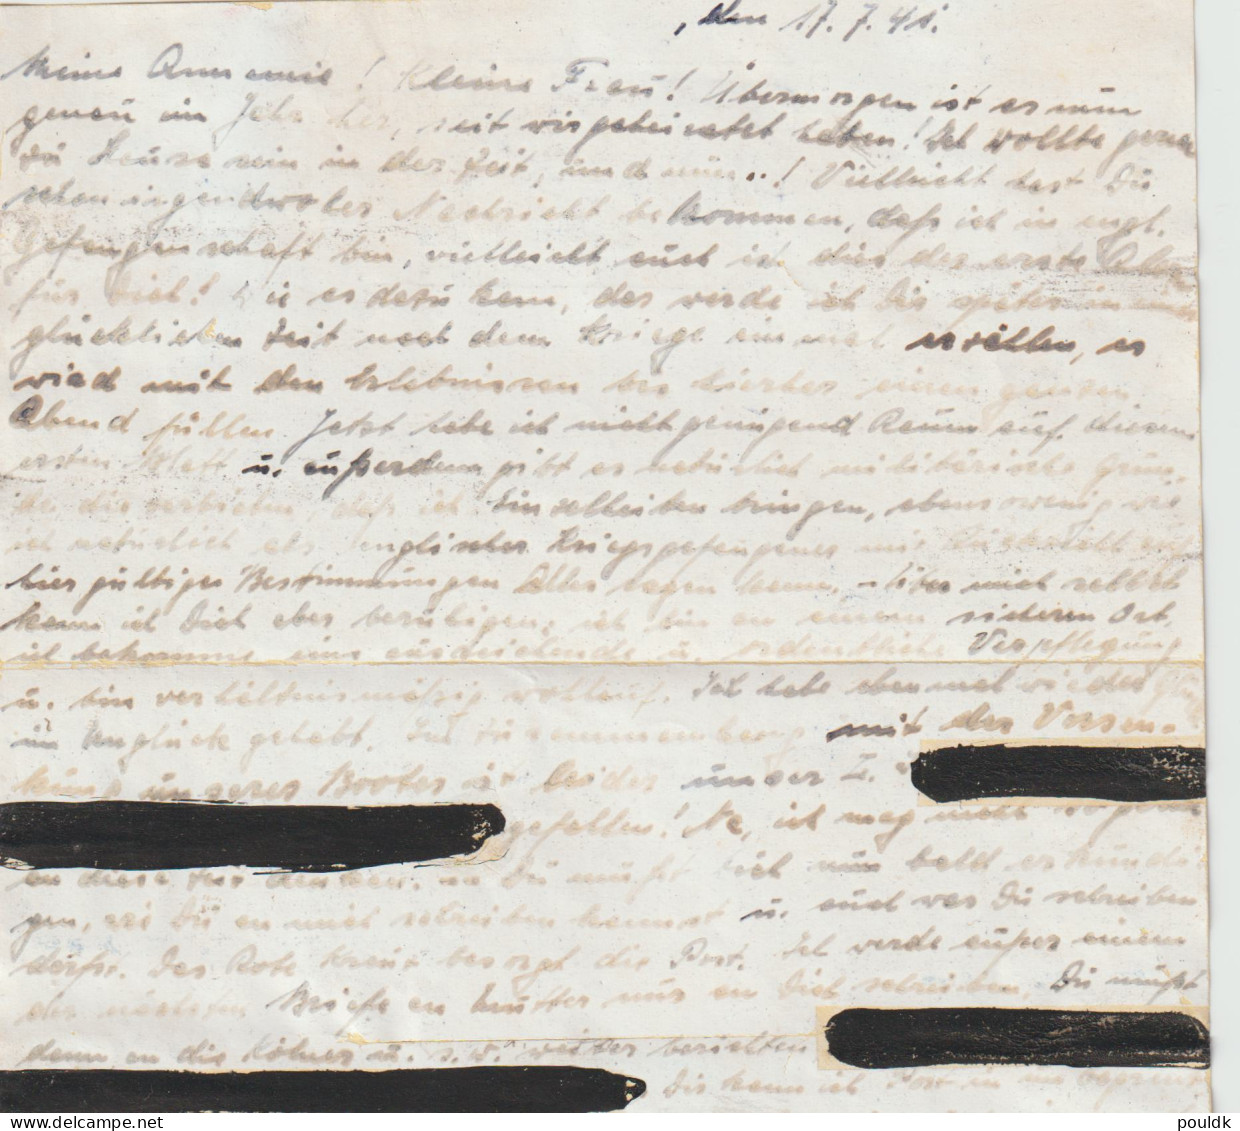 , den 17. 7. 41.
Meine Annemie! Kleine Frau! Übermorgen ist es nun
genau ein Jahr her, seit wir geheiratet haben! Ich wollte gerne
zu Hause sein in der Zeit, und nun..! Vielleicht hast Du
schon irgendwoher Nachricht bekommen, daß ich in engl.
Gefangenschaft bin, vielleicht auch ist dies das erste
für Dich! Wie es dazu kam, das werde ich Dir später in einer
glücklichen Zeit nach dem Kriege einmal erzählen, es
wird mit den Erlebnissen bis hierher einen ganzen
Abend füllen. Jetzt habe ich nicht genügend Raum auf diesem
ersten Blatt u. außerdem gibt es natürlich militärische Grün-
de die verbieten, daß ich Einzelheiten bringen, ebensowenig wie
ich natürlich als englischer Kriegsgefangener mit Rücksicht auf
hier gültige Bestimmungen Alles sagen kann. - Über mich selbst
kann ich Dich aber beruhigen: ich bin an einem sicheren Ort,
ich bekomme eine ausreichende u. ordentliche Verpflegung
u. bin verhältnismäßig wohlauf. Ich habe eben mal wieder Glück
im Unglück gehabt. Im Zusammenhang mit der Versen-
kung unseres Bootes ist leider unser I.
gefallen! Na, ich mag nicht so gern
an diese Zeit denken. Du mußt Dich nun bald erkundi-
gen, wie Du an mich schreiben kannst u. auch was Du schreiben
darfst. Das Rote Kreuz besorgt die Post. Ich werde außer einem
der nächsten Briefe an Mutter nur an Dich schreiben. Du mußt
dann an die Kölner u. s. w. weiter berichten
Dir kann ich Post in